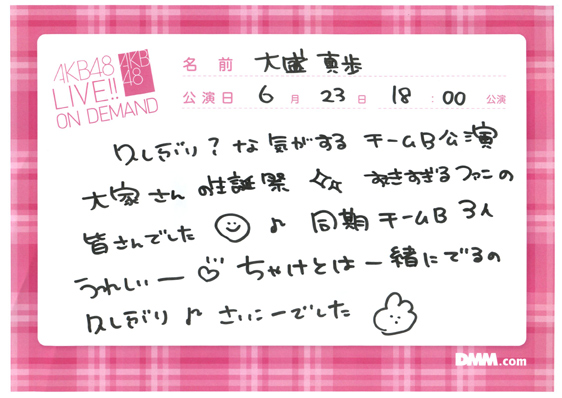 AKB48
LIVE!!
ON DEMAND
AKB
48
名前 大盛 真歩
公演日 6月 23日 18:00 公演
久しぶり?な気がする チームB公演
大家さんの生誕祭 すきすぎるファンの
皆さんでした ♪ 同期チームB 3人
うれしいー ちゃけとは一緒にでるの
久しぶり ♪ さいこーでした
DMM.com